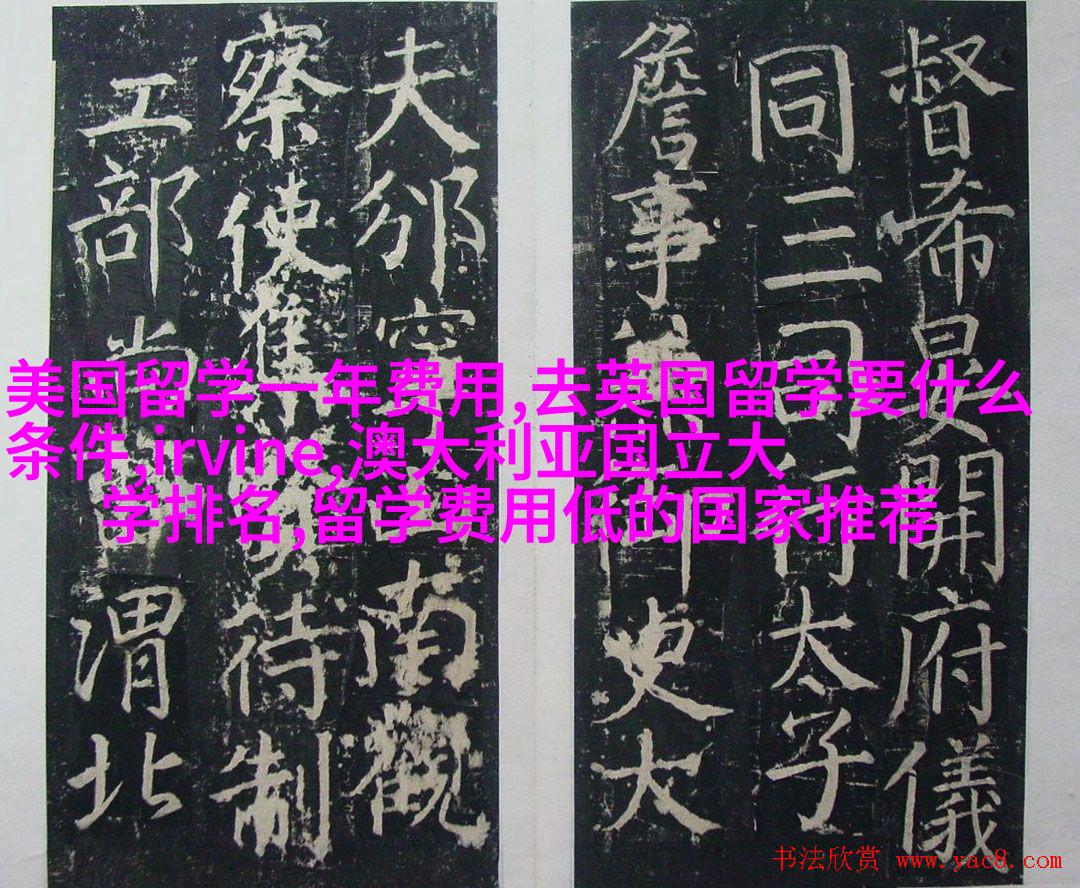 督希晏開府儀
同三司行太子
詹事兼御史大
夫邠寧南觀
察使集賢待制
工部尚書渭北
美国留学一年费用,去英国留学要什么
条件,irvine,澳大利亚国立大
学排名,留学费用低的国家推荐
书法欣赏 www.yac8.com